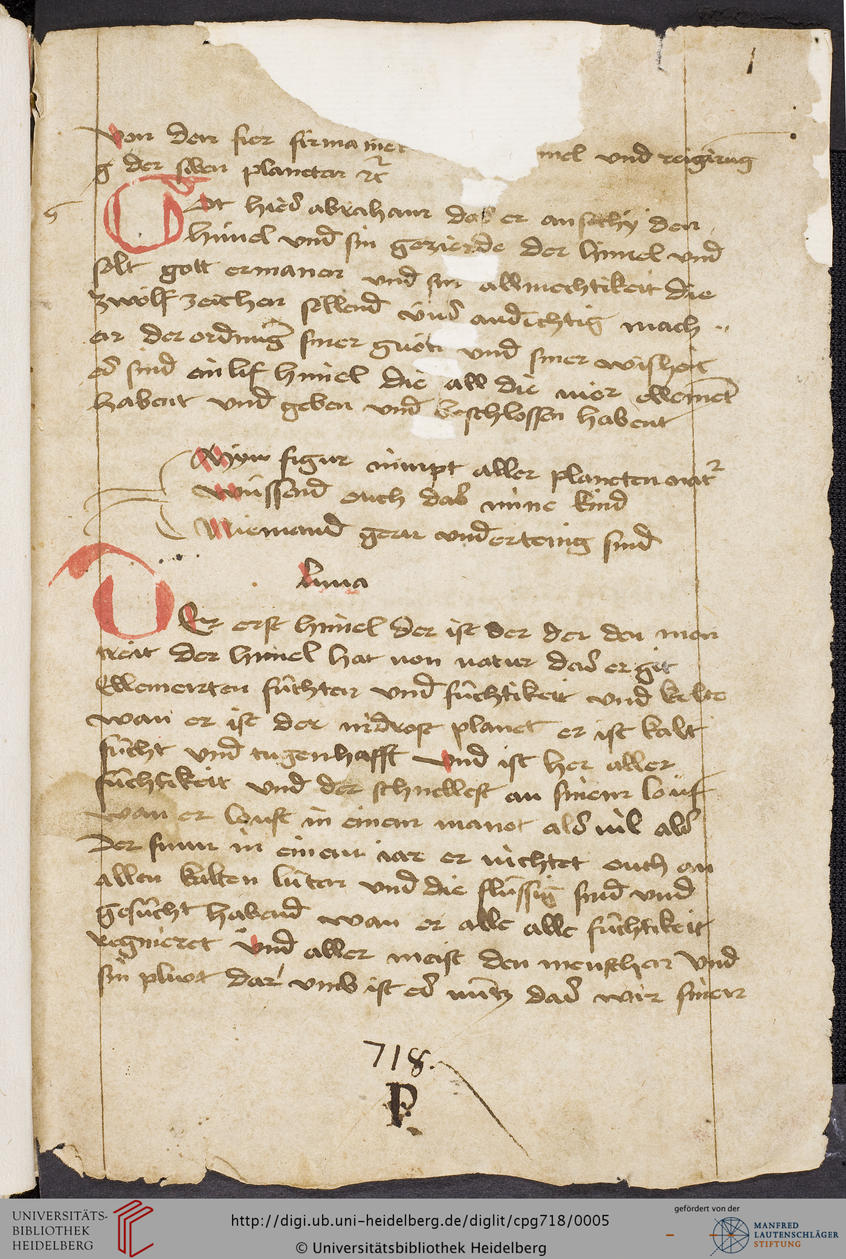 1
Von den fier firmamet mel und reigirug
g der siben planeten etc
Got hies abraham das er ansechy den
himel und sin gezierde der himel und
selt gott ermanen und sin allmechtikeit die
zwölf zeichen sellend üns andechtig mach
en der ordnung siner guoti und siner wisheit
es sind einlif himel die all die vier ellement
habent und geben und beschlossen habent
Myn figur nimpt aller planeten natr
Wüssend ouch das mine kind
Niemand gern undertenig sind
luna
Der erst himel der ist der der den mon
treit der himel hat von natur das er git
Ellementen füchten und füchtikeit und kelte
wan er ist der nidrost planet er ist kalt
fücht und tugenhafft und ist her aller
füchtikeit und der schnellest an sinem louf
wan er louft in einem manot als vil als
der sunn in einem iar er richtet ouch an
allen kalten lüten und die flüssig sind und
gesücht habend wan er alle alle füchtikeit
regnieret und aller meist den menschen und
sin pluot dar umb ist es nütz das wir sinen
718.
P
UNIVERSITÄTS-
BIBLIOTHEK
HEIDELBERG
http://digi.ub.uni-heidelberg.de/diglit/cpg718/0005
© Universitätsbibliothek Heidelberg
gefördert von der
MANFRED
LAUTENSCHLÄGER
STIFTUNG